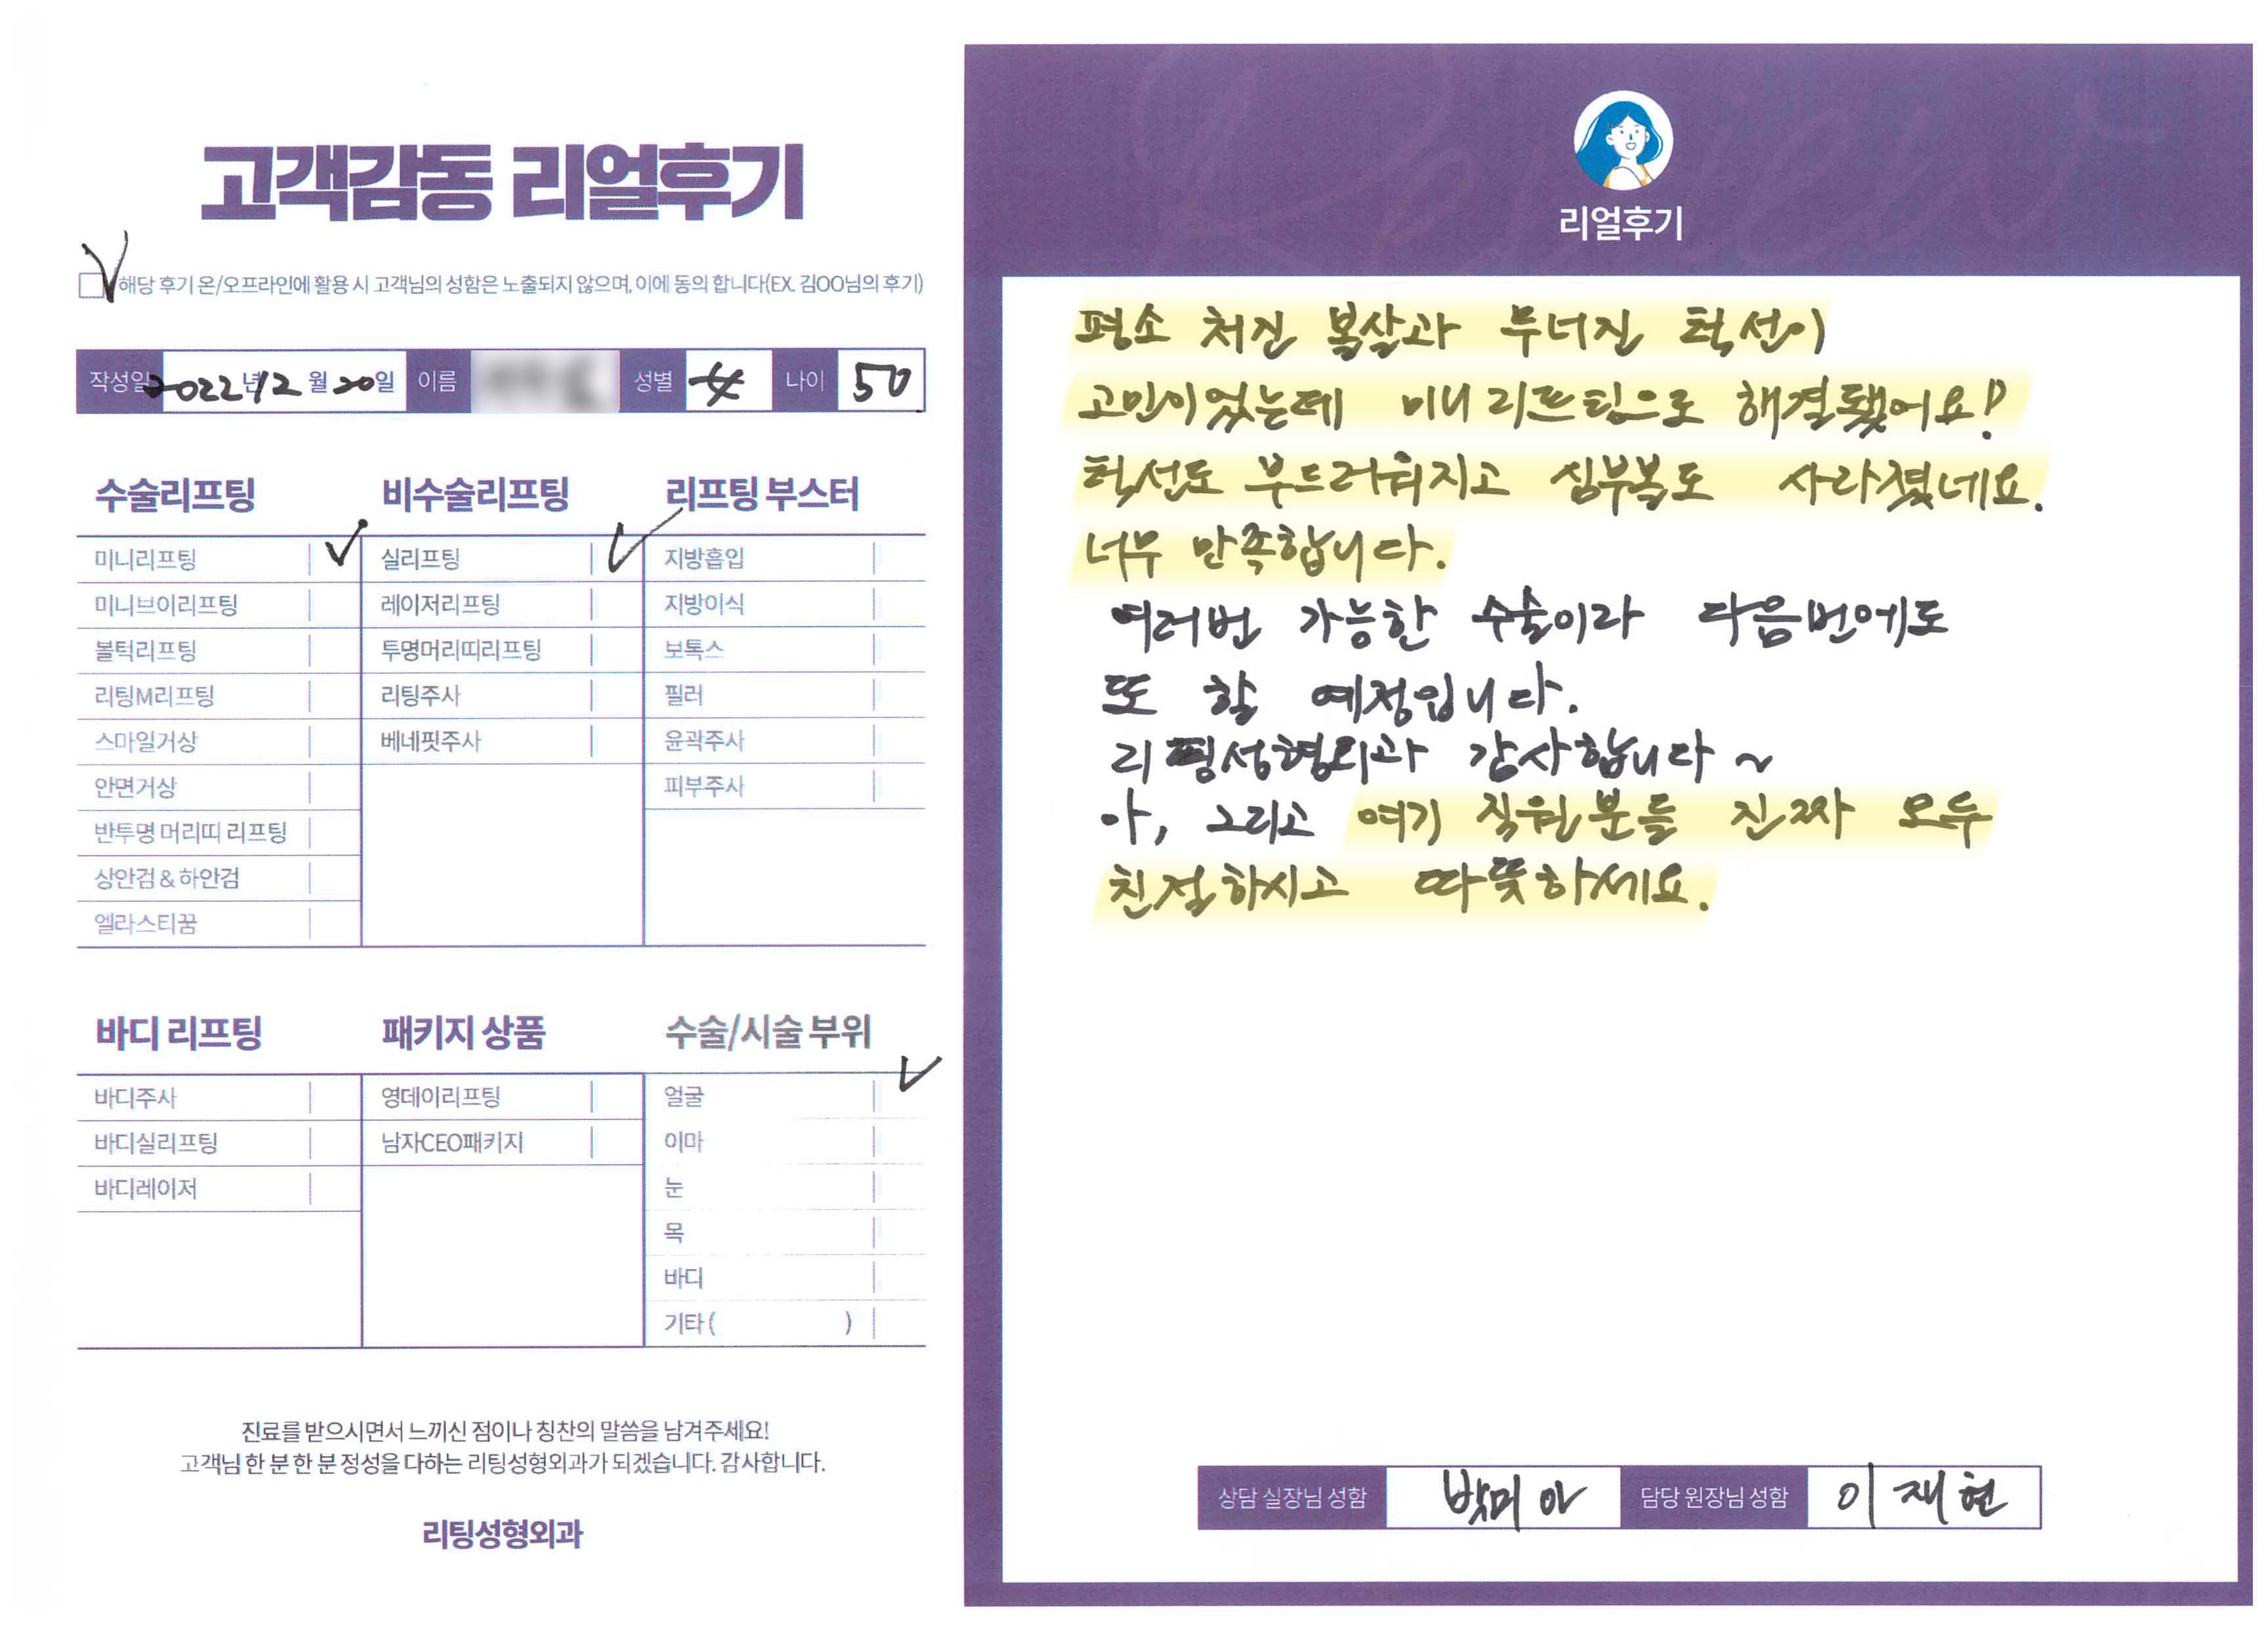 고객감동 리얼후기
해당 후기 온/오프라인에 활용 시 고객님의 성함은 노출되지 않으며, 이에 동의 합니다(EX. 김OO님의 후기)
작성일 2022년 12월 20일 이름 성별 女 나이 50
수술리프팅
미니리프팅
미니브이리프팅
볼턱리프팅
리팅M리프팅
스마일거상
안면거상
반투명 머리띠 리프팅
상안검 & 하안검
엘라스티꿈
비수술리프팅
실리프팅
레이저리프팅
투명머리띠리프팅
리팅주사
베네핏주사
리프팅 부스터
지방흡입
지방이식
보톡스
필러
윤곽주사
피부주사
바디 리프팅
바디주사
바디실리프팅
바디레이저
패키지 상품
영데이리프팅
남자CEO패키지
수술/시술 부위
얼굴
이마
눈
목
바디
기타 ( )
진료를 받으시면서 느끼신 점이나 칭찬의 말씀을 남겨주세요!
고객님 한 분 한 분 정성을 다하는 리팅성형외과가 되겠습니다. 감사합니다.
리팅성형외과
리얼후기
평소 처진 볼살과 무너진 턱선이
고민이었는데 미니리프팅으로 해결됐어요!
턱선도 부드러워지고 심부볼도 사라졌네요.
너무 만족합니다.
여러번 가능한 수술이라 다음번에도
또 할 예정입니다.
리팅성형외과 감사합니다~
아, 그리고 여기 직원분들 진짜 모두
친절하시고 따뜻하세요.
상담 실장님 성함 박미아 담당 원장님 성함 이재현